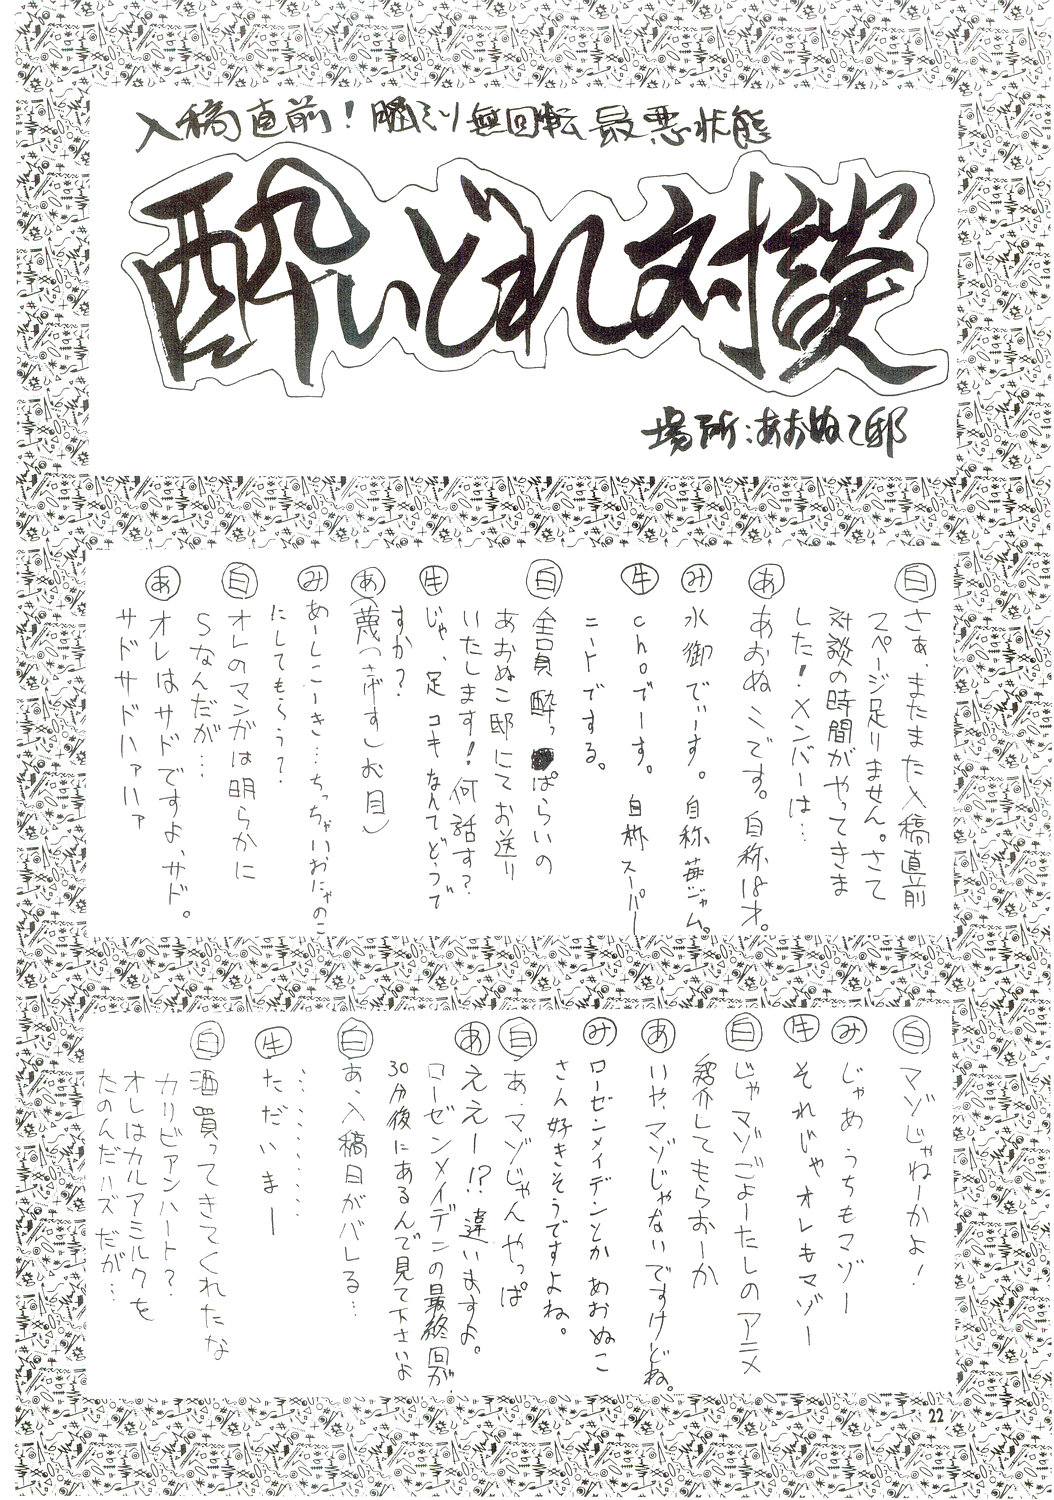 入稿直前！脳ミソ無回転最悪状態
酔いどれ対談
場所：あおぬこ邸
白 さぁ、またまた入稿直前
スページ足りません。さて
対談の時間がやってきま
した！メンバーは…
あ あおぬこです。自称18才。
み 水御でぃーす。自称苺ジャム。
牛 choでーす。自称スーパー
ニートでする。
白 全員酔っぱらいの
あおぬこ邸にてお送り
いたします！何話す？
牛 じゃ、足コキなんてどうで
すか？
あ (蔑っさげすむ目)
み めーしこーき…ちっちゃいおにゃのこ
にしてもらう？
白 オレのマンガは明らかに
Sなんだが…
あ オレはサドですよ、サド。
サドサドハァハァ
白 マゾじゃねーかよ！
み じゃあうちもマゾー
牛 それじゃオレもマゾー
白 じゃマゾごよーたしのアニメ
紹介してもらおーか
あ いや、マゾじゃないですけどね。
み ローゼンメイデンとかあおぬこ
さん好きそうですよね。
白 あ、マゾじゃんやっぱ
あ ええー!?違いますよ。
ローゼンメイデンの最終回が
30分後にあるんで見て下さいよ
白 あ、入稿日がバレる…
………
牛 ただいまー
白 酒買ってきてくれたな
カリビアンハート？
オレはカルアミルクを
たのんだハズだが…
22